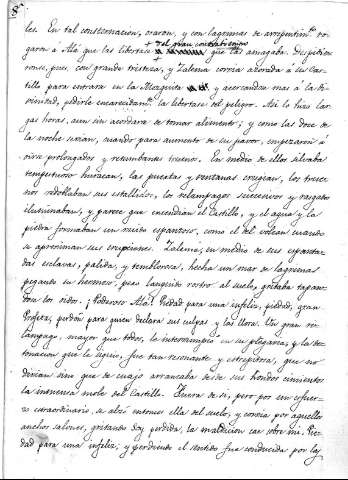 8
les. En tal consternacion, oraron, y con lagrimas de arrepentim.to ro-
garon á Alá que las libertase
del gran contratiempo
que las amagaba. Despidieron-
se, pues, con grande tristeza, y Zalema corria azorada á su Cas-
tillo para entrar en la Mezquita y acercandose mas á la Di-
vinidad, pedirle encarecidam.te la libertase del peligro. Asi lo hizo lar-
gas horas, aun sin acordarse de tomar alimento; y como las doce de
la noche serian, cuando para aumento de su pavor, empezaron á
oirse prolongados y retumbantes truenos. En medio de ellos silvaba
tempestuoso huracan, las puertas y ventanas crugian, los true-
nos redoblaban sus estallidos, los relampagos sucesivos y rasgados
iluminaban, y parece que encendian el Castillo, y el agua y la
piedra formaban un ruido espantoso, como el del volcan cuando
se aproximan sus erupciones. Zalema, en medio de sus espanta-
das esclavas, palida, y temblorosa, hecha un mar de lagrimas
pegando su hermoso, pero languido rostro al suelo, gritaba tapan-
dose los oidos: ¡Poderoso Alá! Piedad para una infeliz, piedad, gran
Profeta; perdon para quien declara sus culpas y las llora. Un gran re-
lampago, mayor que todos, la interrumpió en su plegaria; y la de-
tonacion que le siguió, fue tan resonante y estrepitosa, que no
dirian sino que de cuajo arrancaba de sus hondos cimientos
la inmensa mole del Castillo. Fuera de si, pero por un esfuer-
zo extraordinario, se alzó entonces ella del suelo, y corria por aquellos
anchos salones, gritando: Soy perdida, la maldicion cae sobre mi. Pie-
dad para una infeliz; y perdiendo el sentido fue conducida por las